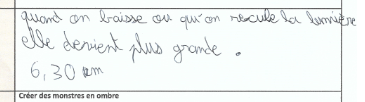 quand on baisse ou qu'on recule la lumière
elle devient plus grande.
6,30 cm
Créer des monstres en ombre